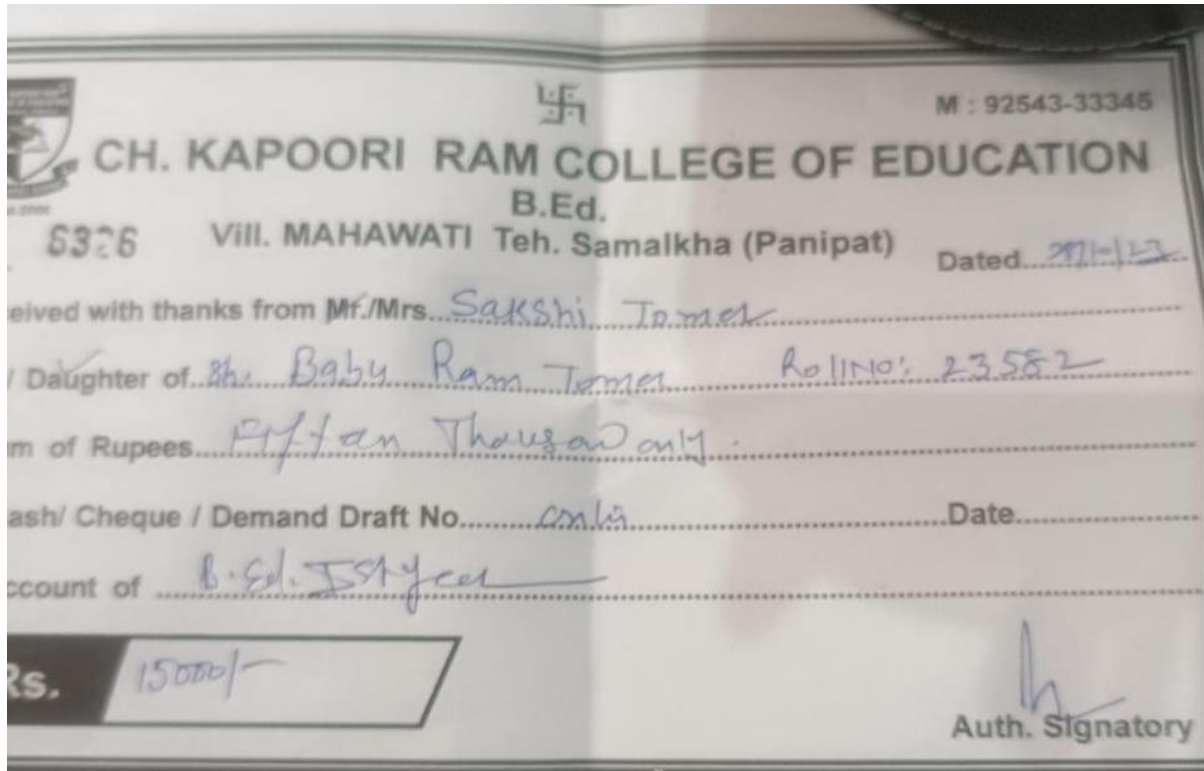 M : 92543-33345
CH. KAPOORI RAM COLLEGE OF EDUCATION
B.Ed.
Vill. MAHAWATI Teh. Samalkha (Panipat) Dated
eived with thanks from Mr./Mrs. Sakshi Tomer
/ Daughter of Sh. Babu Ram Tomer Roll No: 23582
m of Rupees only.
ash/ Cheque / Demand Draft No. Date
ccount of B.Ed. Ist year
Rs. 15000/-
Auth. Signatory